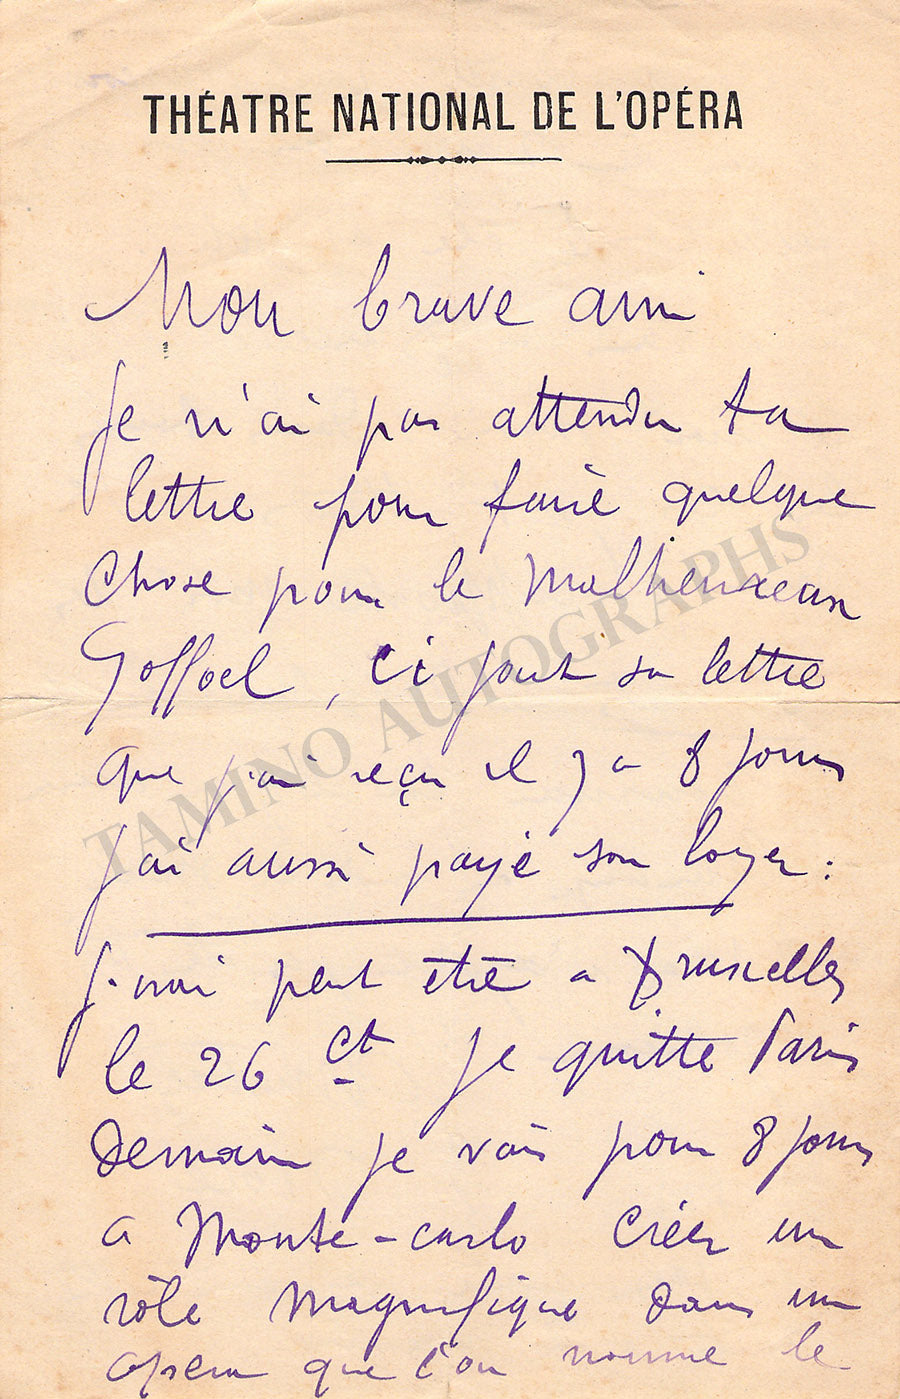 THÉATRE NATIONAL DE L'OPÉRA
Mon brave ami
Je n'ai pas attendu ta
lettre pour faire quelque
chose pour le malheureux
Goffoel, ci joint sa lettre
que j'ai reçu il y a 8 jours
j'ai aussi payé son loyer :
j'irai peut être a Bruxelles
le 26 ct je quitte Paris
Demain je vais pour 8 jours
a Monte-carlo créer un
rôle magnifique dans un
opera que l'on nomme le
TAMINO AUTOGRAPHS